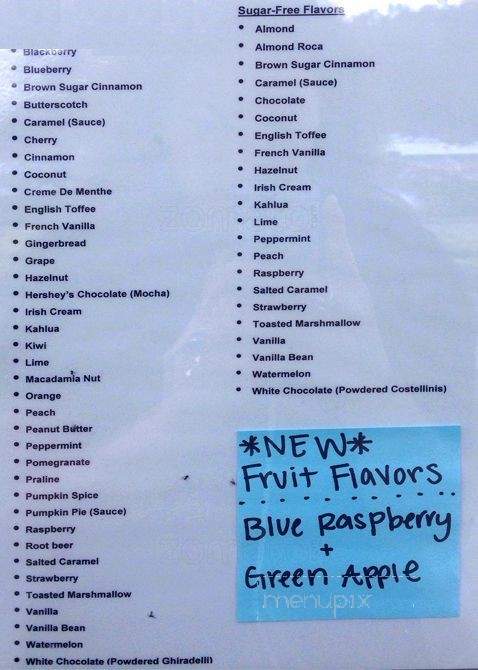 Blackberry
Blueberry
Brown Sugar Cinnamon
Butterscotch
Caramel (Sauce)
Cherry
Cinnamon
Coconut
Creme De Menthe
English Toffee
French Vanilla
Gingerbread
Grape
Hazelnut
Hershey's Chocolate (Mocha)
Irish Cream
Kahlua
Kiwi
Lime
Macadamia Nut
Orange
Peach
Peanut Butter
Peppermint
Pomegranate
Praline
Pumpkin Spice
Pumpkin Pie (Sauce)
Raspberry
Root beer
Salted Caramel
Strawberry
Toasted Marshmallow
Vanilla
Vanilla Bean
Watermelon
White Chocolate (Powdered Ghiradelli)
Sugar-Free Flavors
Almond
Almond Roca
Brown Sugar Cinnamon
Caramel (Sauce)
Chocolate
Coconut
English Toffee
French Vanilla
Hazelnut
Irish Cream
Kahlua
Lime
Peppermint
Peach
Raspberry
Salted Caramel
Strawberry
Toasted Marshmallow
Vanilla
Vanilla Bean
Watermelon
White Chocolate (Powdered Costellinis)
*NEW*
Fruit Flavors
Blue Raspberry
+
Green Apple
menupix